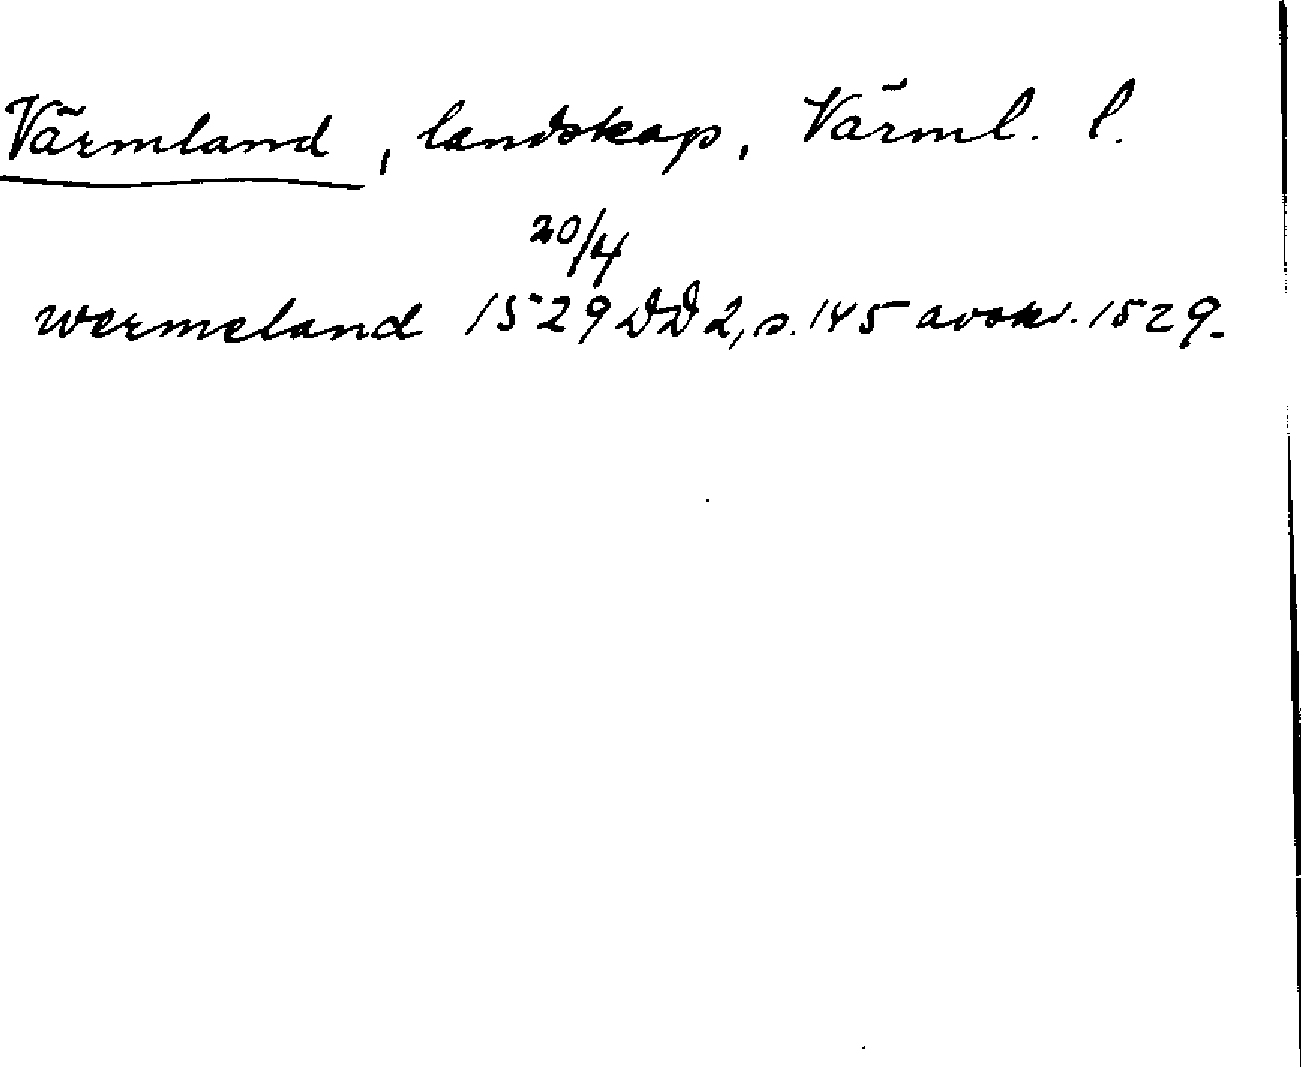 Värmland, landskap, Värml. l.
20/4
wermeland 1529 DD 2, s. 145 avskr. 1529.